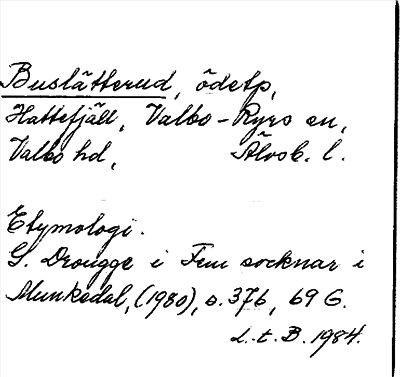 Buslätterud, ödetp,
Hattefjäll, Valbo-Ryrs sn,
Valbo hd, Älvsb. l.
Etymologi.
G. Drougge i Fem socknar i
Munkedal, (1980), s. 376, 69 G.
L.t.B. 1984.